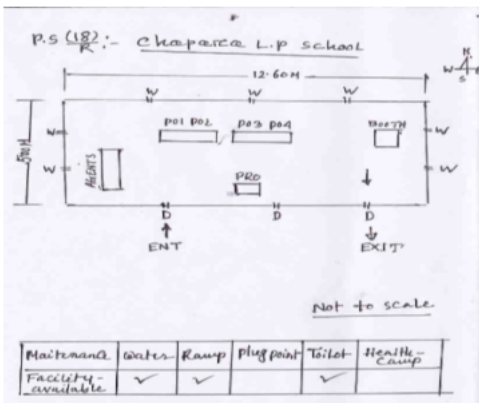 P.S (18)/R :- Chaparca L.P School
N
W E
S
12.60M
W W W
PO1 PO2 PO3 PO4 BOOTH
W W
W W
AGENTS
PRO
D D D
ENT EXIT
Not to scale
Maitenance Water Ramp Plug point Toilet Health-Camp
Facility-available ✓ ✓ ✓